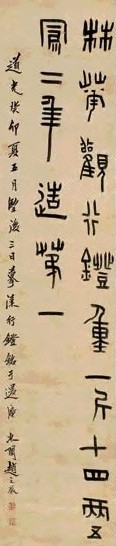 林華觀行鐙重一斤十四兩五
鳳二年造第一
道光癸卯夏五月望後三日摹漢行鐙銘于退庵 次閑趙之琛